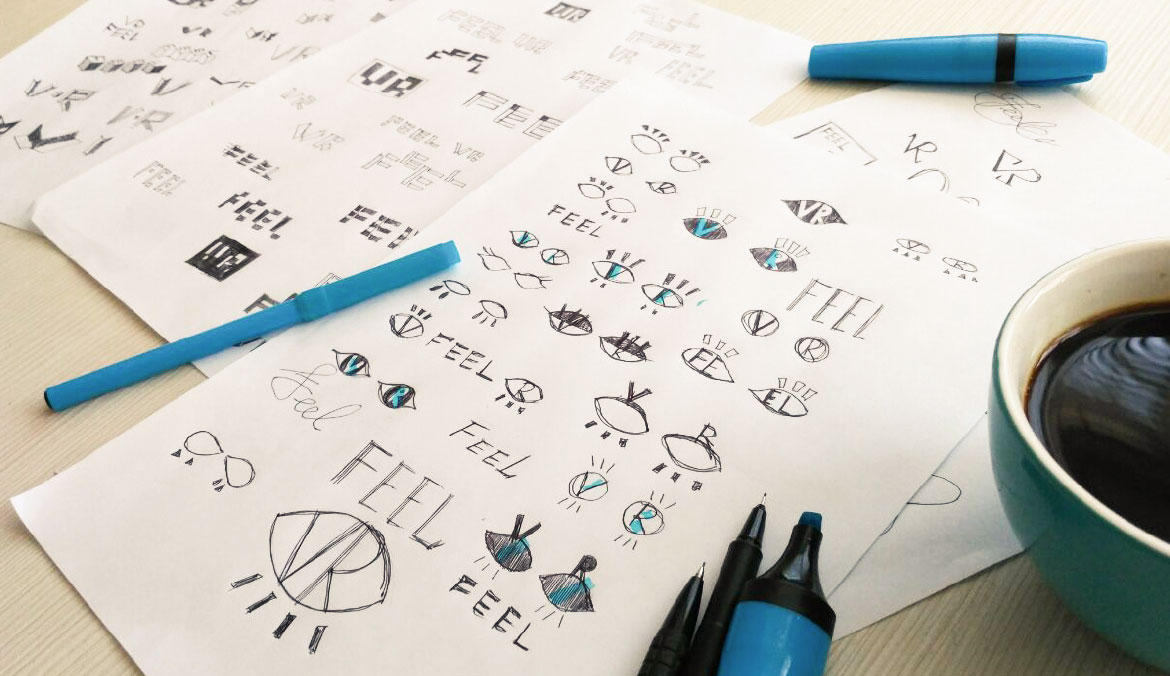 VR
FEEL
VR
VR
FEEL
VR
FEEL
V·R
V
VR
FEEL
FEEL
V·R
FEE
VR
FEEL
VR
FEEL
VR
FEEL
VR
FEEL
FEEL
FEEL
VR
Feel
FEEL
VR
VR
V R
VR
FEEL
V R
V R
V R
V R
FEEL
V R
V
FEEL
R
FE
EL
V R
Feel
V R
FEEL
V R
FEEL
VR
V
FEEL